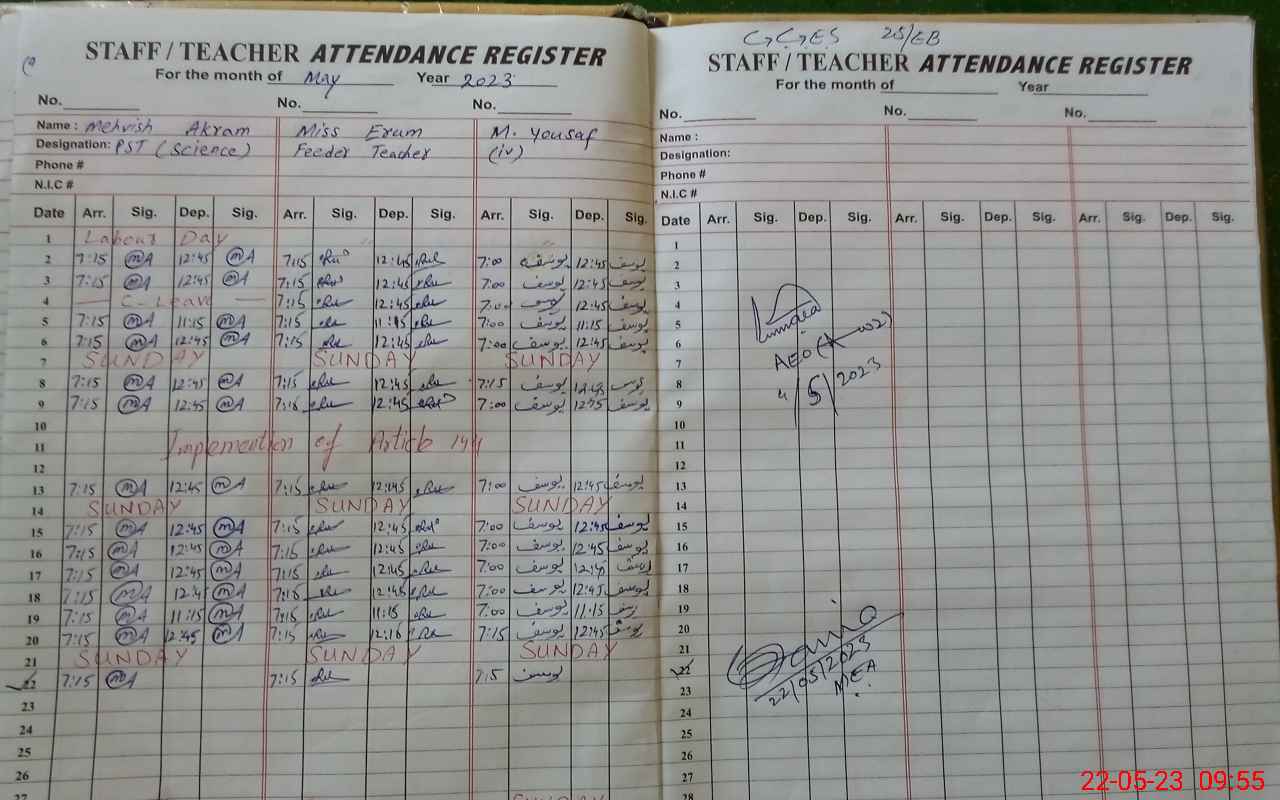 STAFF / TEACHER ATTENDANCE REGISTER
For the month of May Year 2023
No. No. No.
Name : Mehvish Akram Miss Erum M. Yousaf
Designation: PST (Science) Feeder Teacher (iv)
Phone #
N.I.C #
Date Arr. Sig. Dep. Sig. Arr. Sig. Dep. Sig. Arr. Sig. Dep. Sig.
1 Labour Day
2 7:15 MA 12:45 MA 7:15 12:45 7:00 یوسف 12:45 یوسف
3 7:15 MA 12:45 MA 7:15 12:45 7:00 یوسف 12:45 یوسف
4 C-Leave 7:15 12:45 7:00 یوسف 12:45 یوسف
5 7:15 MA 11:15 MA 7:15 11:15 7:00 یوسف 11:15 یوسف
6 7:15 MA 12:45 MA 7:15 12:45 7:00 یوسف 12:45 یوسف
7 SUNDAY SUNDAY SUNDAY
8 7:15 MA 12:45 MA 7:15 12:45 7:15 یوسف 12:45
9 7:15 MA 12:45 MA 7:15 12:45 7:00 یوسف 12:45 یوسف
10
11 Implemention of Article 144
12
13 7:15 MA 12:45 MA 7:15 12:45 7:00 یوسف 12:45 یوسف
14 SUNDAY SUNDAY SUNDAY
15 7:15 MA 12:45 MA 7:15 12:45 7:00 یوسف 12:45 یوسف
16 7:15 MA 12:45 MA 7:15 12:45 7:00 یوسف 12:45 یوسف
17 7:15 MA 12:45 MA 7:15 12:45 7:00 یوسف 12:45 یوسف
18 7:15 MA 12:4 MA 7:15 12:45 7:00 یوسف 12:45 یوسف
19 7:15 MA 11:15 MA 7:15 11:15 7:00 یوسف 11:15
20 7:15 MA 12:45 MA 7:15 12:16 7:15 یوسف 12:45 یوسف
21 SUNDAY SUNDAY SUNDAY
22 7:15 MA 7:15 7:15 یوسف
23
24
25
26
27 SUNDAY
G.G.E.S 25/EB
STAFF / TEACHER ATTENDANCE REGISTER
For the month of Year
No. No. No.
Name :
Designation:
Phone #
N.I.C #
Date Arr. Sig. Dep. Sig. Arr. Sig. Dep. Sig. Arr. Sig. Dep. Sig.
1
2
3
4
5
6 AEO
7
8 4/5/2023
9
10
11
12
13
14
15
16
17
18
19
20
21
22 22/05/2023
23 MEA
24
25
26
27
28
22-05-23 09:55